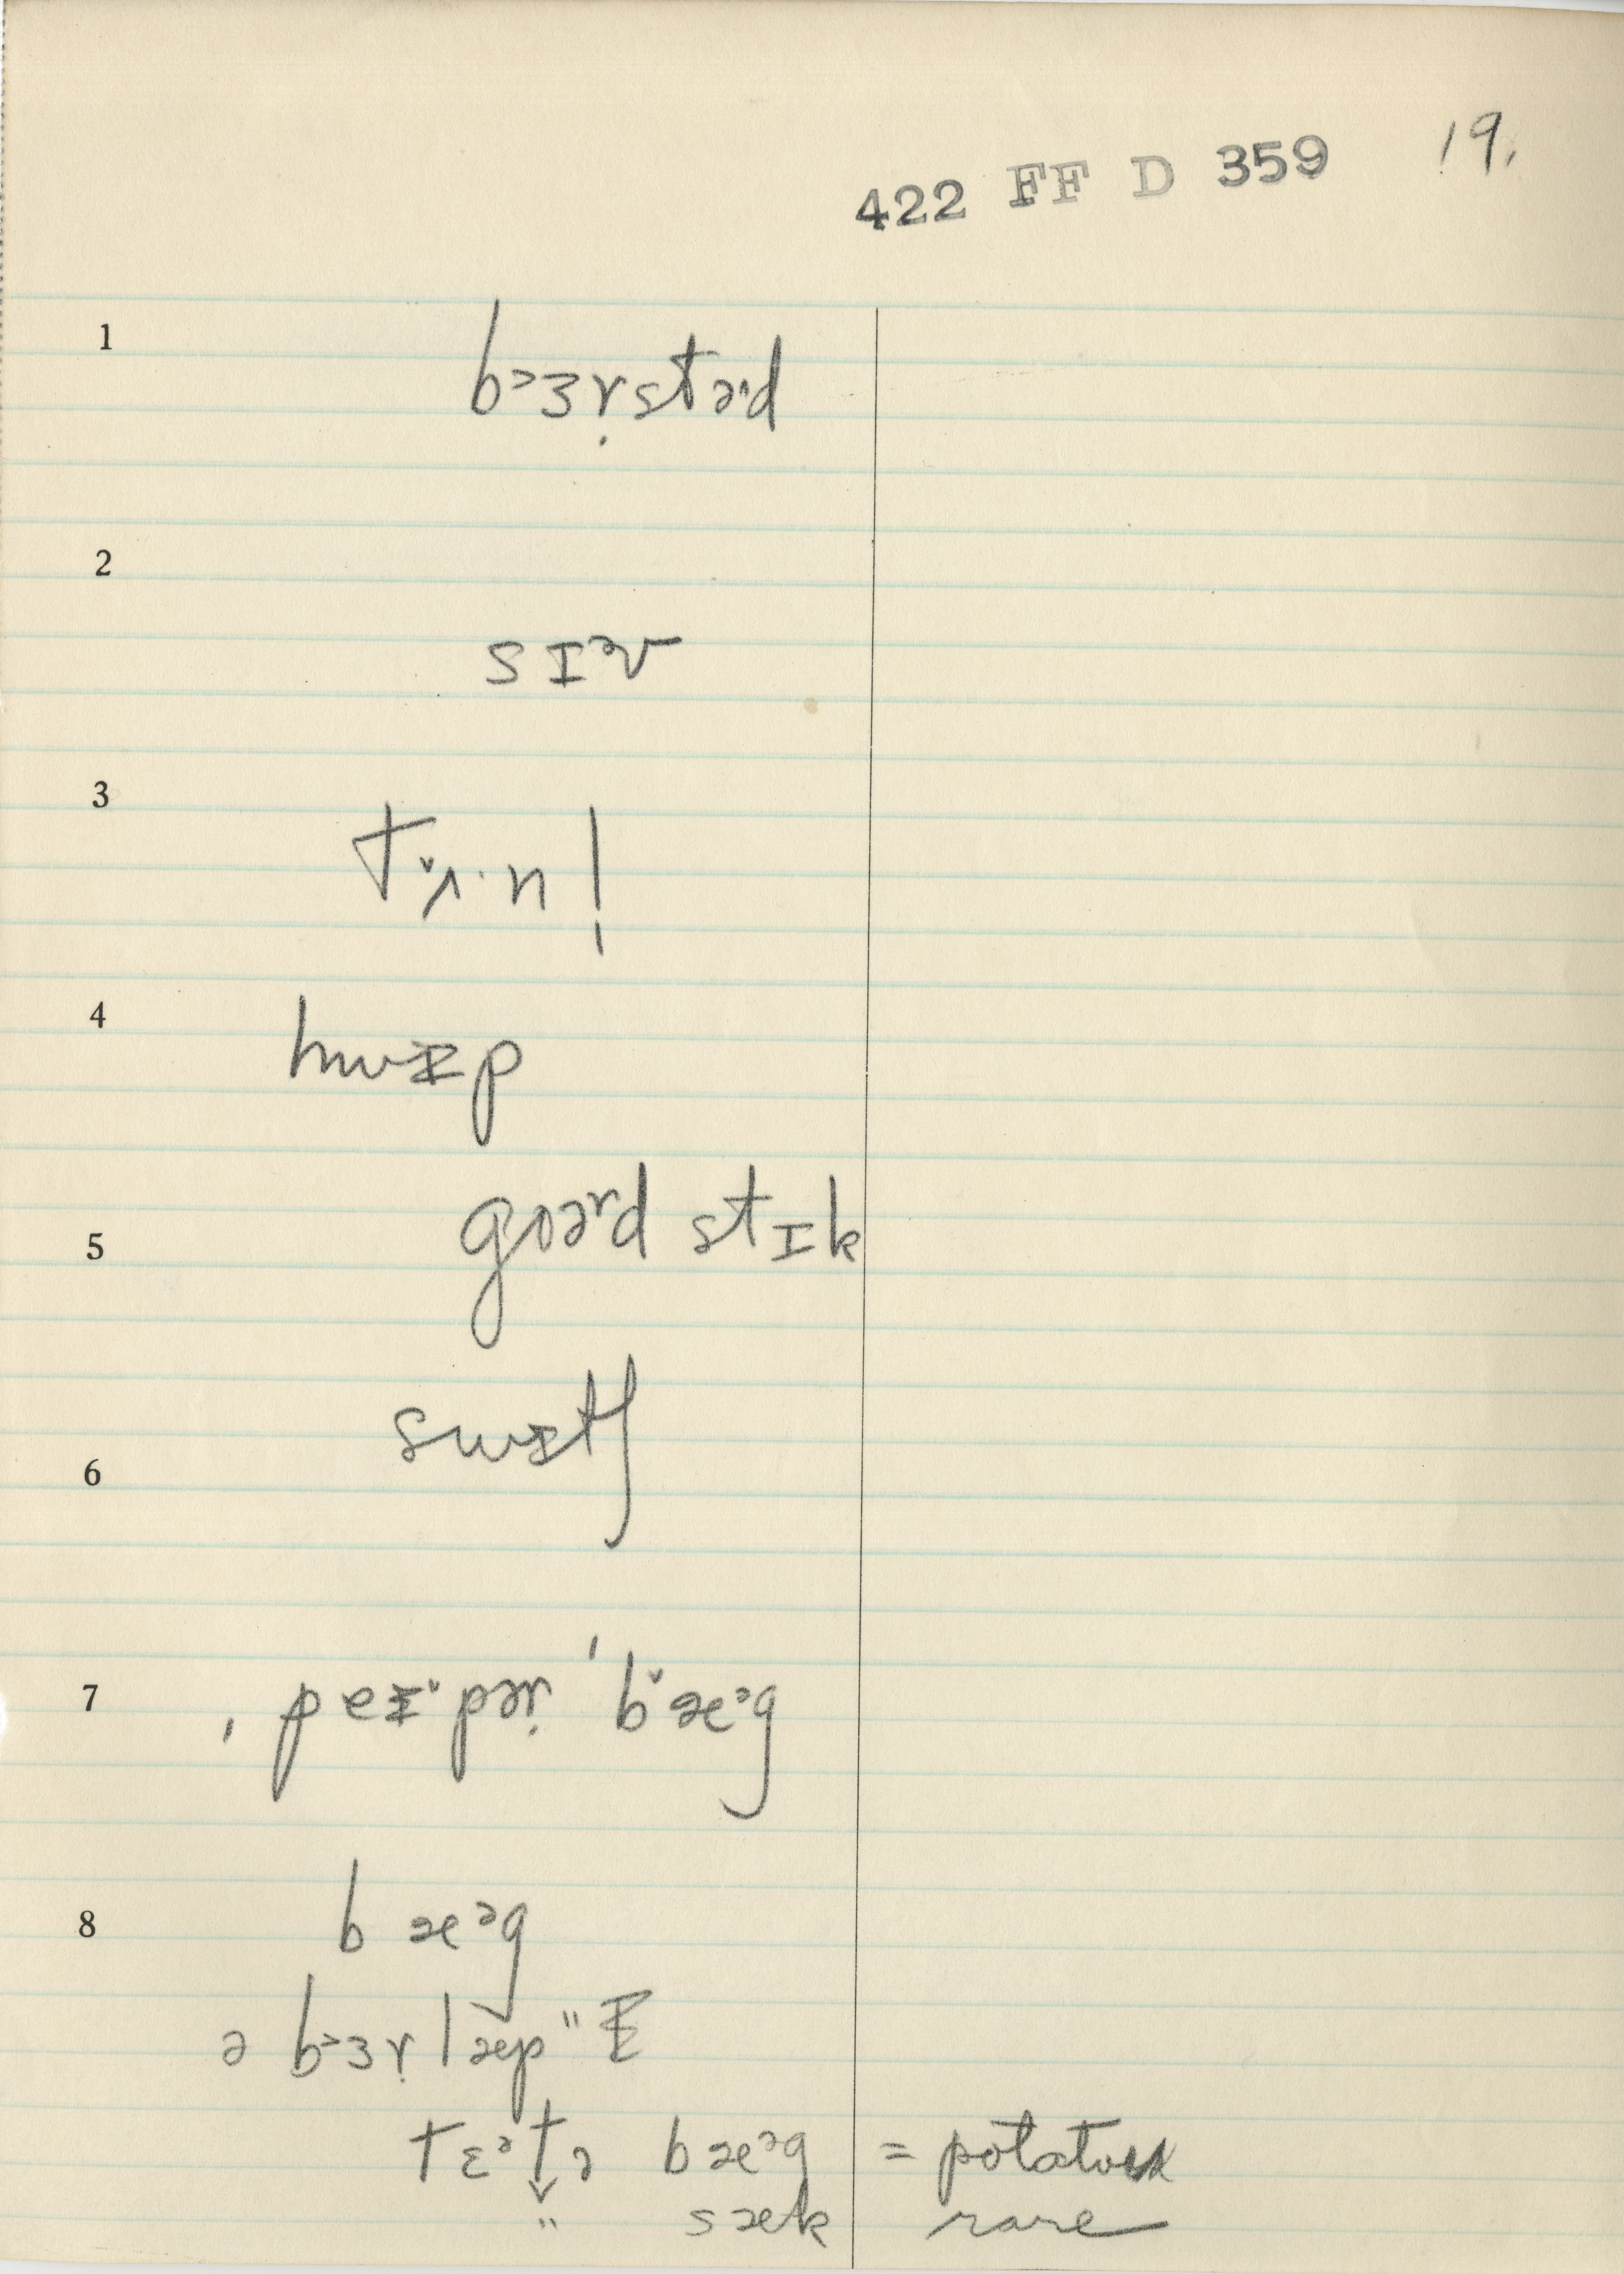 422 FF D 359 19.
1 bᵊɜṛstəʳd
2 sɪᵊv
3 tʌ̌·nl̩
4 hwɪp
5 goəʳd stɪk
6 swɪtʃ
7 ˌpeɪˇpəṛ ˈbˇæᵊg
8 bæᵊg
ə bᵊɜṛlæp " ɪ
tɛᵊt̬ə bæᵊg = potatoes
" sæk rare